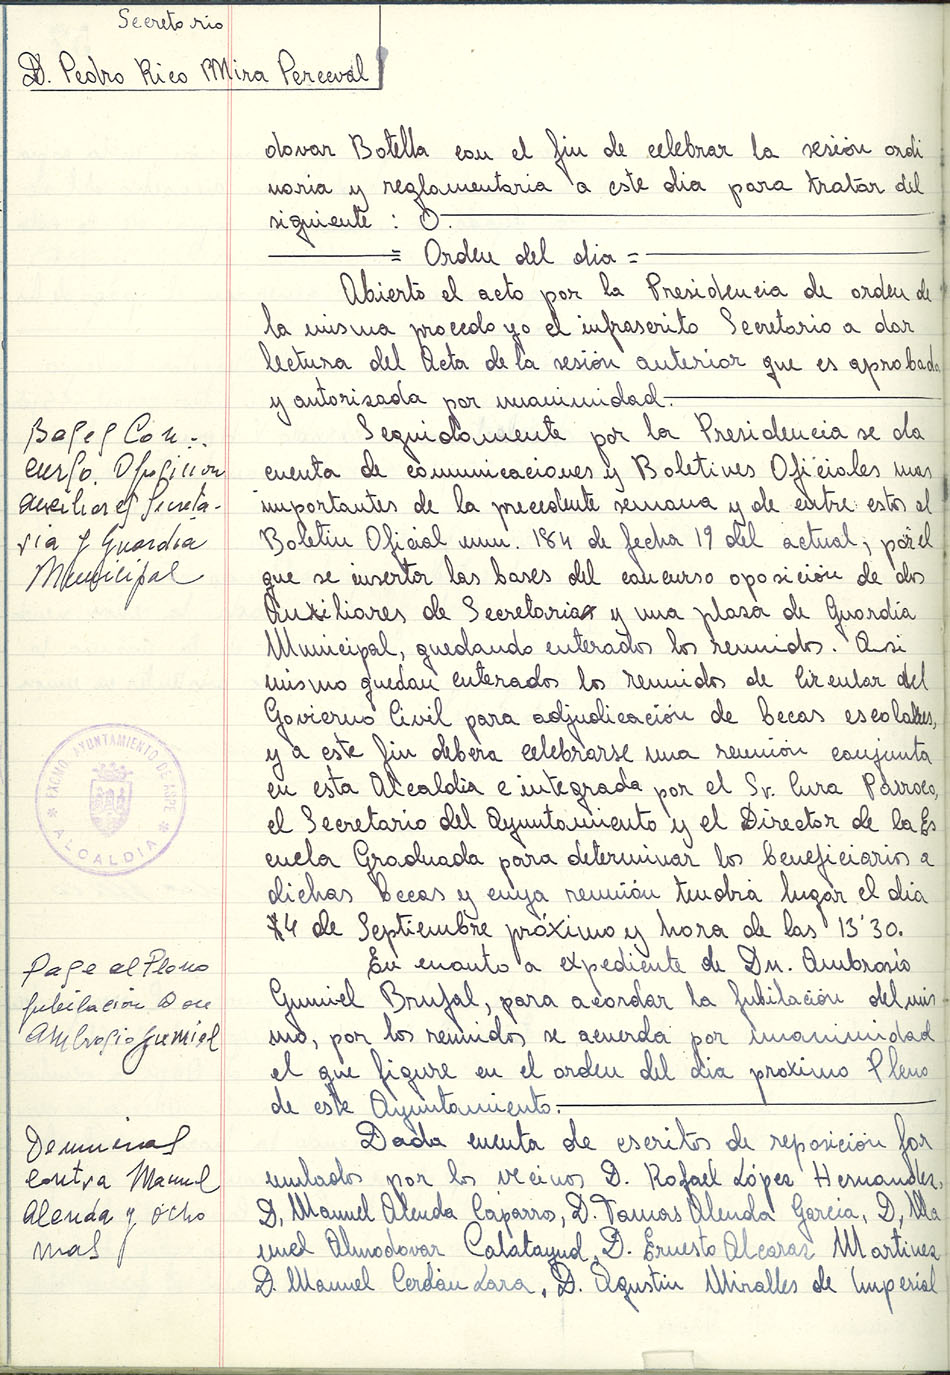 Secretario
D. Pedro Rico Mira Perceval
dovar Botella con el fin de celebrar la sesión ordi
naria y reglamentaria a este dia para tratar del
siguiente : O.
= Orden del dia =
Abierto el acto por la Presidencia de orden de
la misma procedo yo el infrascrito Secretario a dar
lectura del Acta de la sesión anterior que es aprobada
y autorizada por unanimidad.
Bases Con-
curso. Oposición
auxiliares Secreta-
ría y Guardia
Municipal
Seguidamente por la Presidencia se da
cuenta de comunicaciones y Boletines Oficiales mas
importantes de la precedente semana y de entre estos el
Boletín Oficial num. 184 de fecha 19 del actual, por el
que se insertar las bases del concurso oposición de dos
Auxiliares de Secretaria y una plaza de Guardia
Municipal, quedando enterados los reunidos. Asi
mismo quedan enterados los reunidos de Circular del
Govierno Civil para adjudicación de becas escolares,
y a este fin debera celebrarse una reunión conjunta
en esta Alcaldía e integrada por el Sr. Cura Párroco,
el Secretario del Ayuntamiento y el Director de la Es
cuela Graduada para determinar los beneficiarios a
dichas becas y cuya reunión tendrá lugar el dia
14 de Septiembre próximo y hora de las 13'30.
EXCMO. AYUNTAMIENTO DE ASPE
* ALCALDIA *
Pase al Pleno
jubilación Don
Ambrosio Gumiel
En cuanto a expediente de Dn. Ambrosio
Gumiel Brufal, para acordar la jubilación del mis
mo, por los reunidos se acuerda por unanimidad
el que figure en el orden del dia proximo Pleno
de este Ayuntamiento.
Denuncias
contra Manuel
Alenda y ocho
mas
Dada cuenta de escritos de reposición for
mulados por los vecinos D. Rafael López Hernandez,
D, Manuel Alenda Caparros, D. Tomas Alenda Garcia, D, Ma
nuel Almodovar Calatayud, D. Ernesto Alcaraz Martinez
D. Manuel Cerdán Lara, D. Agustin Miralles de Imperial